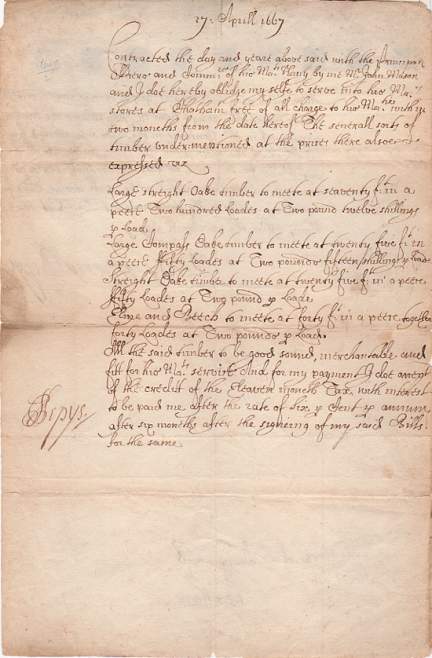 27. Aprill 1667
Contracted the day and yeare above said with the
Officers and Commrs of his Mats Navy by me Mr John Mason
and I doe hereby obleidge my selfe to serve into his Mats
stores at Chatham free of all charge to his Matie within
two months from the date hereof The severall sorts of
timber undermentioned at the prises there alsoe
expressed viz
Large streight Oake timber to meete at seaventy ft in a
peece Two hundred loades at Two pound twelve shillings
p Load.
Large Compass Oake timber to meete at twenty five ft in
a peece fifty Loades at Two pounds fifteen shillings p Load
Streight Oake timber to meete at twenty five ft in a peece
fifty Loades at Two pound p Loade.
Elme and Beech to meete at forty ft in a peece together
forty Loades at Two pounds p Load.
All the said timber to be good sound, merchantable and
fitt for his Mats service And for my payment I doe accept
of the creditt of the Eleaven months Tax with interest
to be paid me after the rate of Six p Cent p annum
after six months after the signeing of my said Bills
for the same.
SPepys.